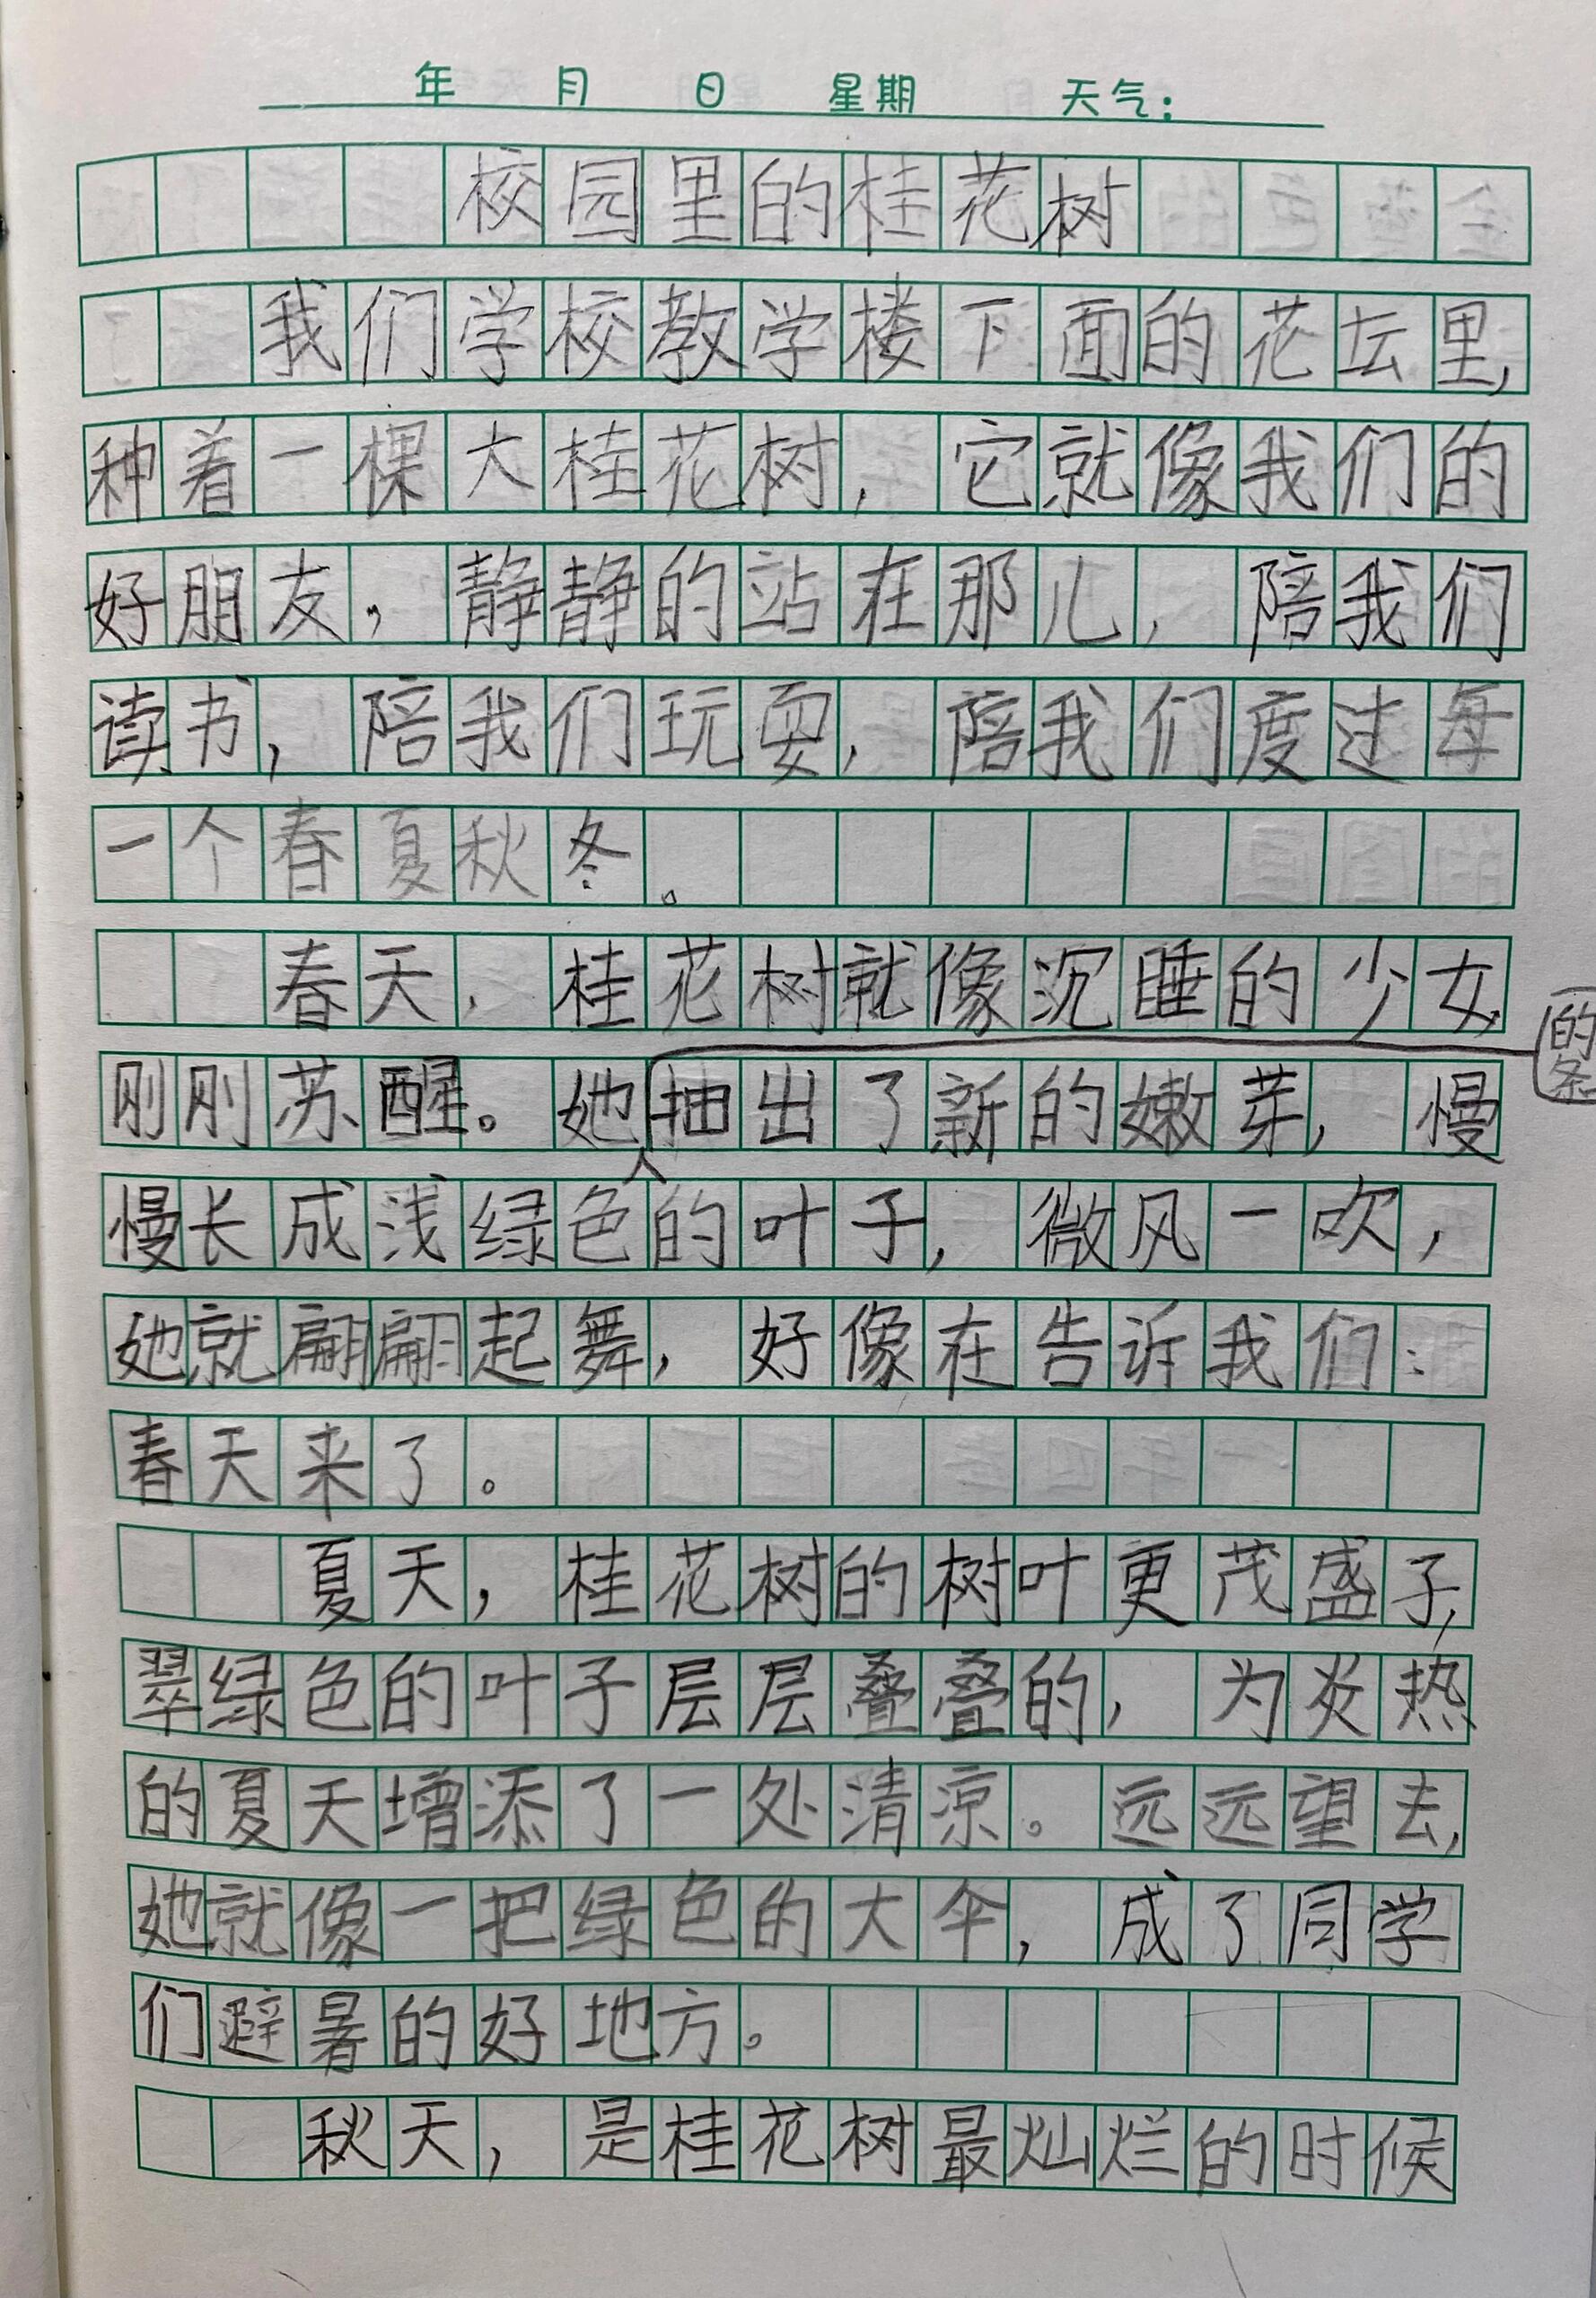 年 月 日 星期 天气：
校园里的桂花树
我们学校教学楼下面的花坛里，
种着一棵大桂花树，它就像我们的
好朋友，静静的站在那儿，陪我们
读书，陪我们玩耍，陪我们度过每
一个春夏秋冬。
春天，桂花树就像沉睡的少女，
的条
刚刚苏醒。她抽出了新的嫩芽，慢
慢长成浅绿色的叶子，微风一吹，
她就翩翩起舞，好像在告诉我们：
春天来了。
夏天，桂花树的树叶更茂盛了，
翠绿色的叶子层层叠叠的，为炎热
的夏天增添了一处清凉。远远望去，
她就像一把绿色的大伞，成了同学
们避暑的好地方。
秋天，是桂花树最灿烂的时候